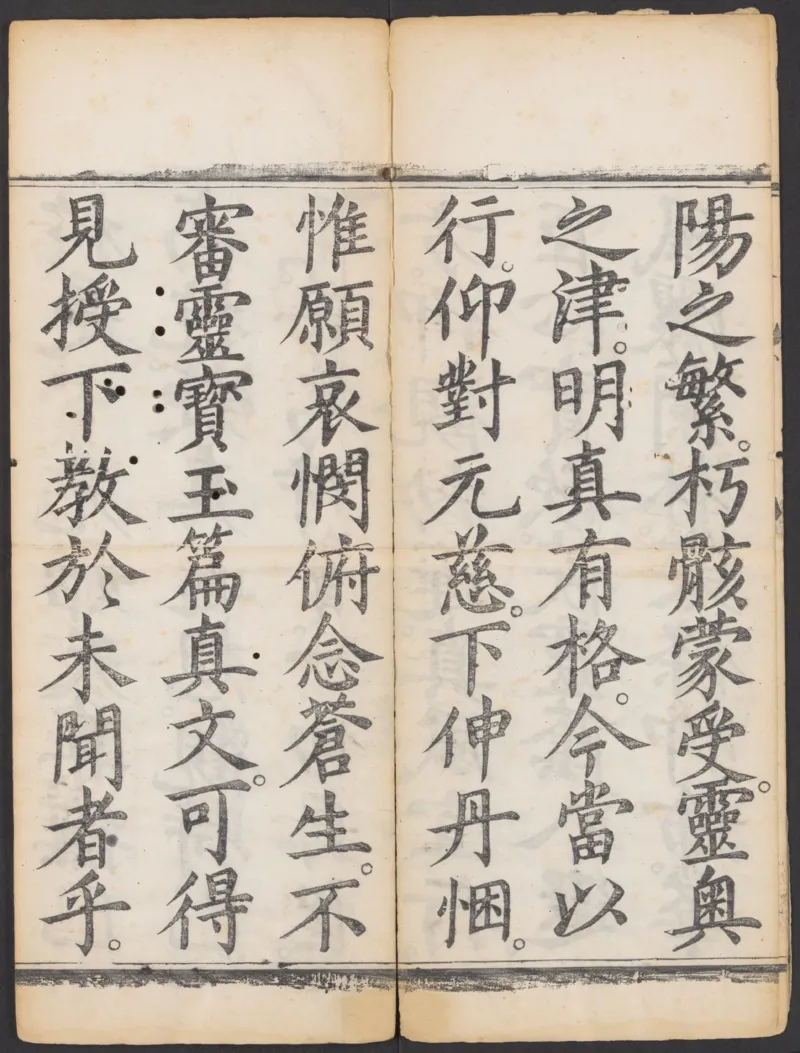 陽之繁。朽骸蒙受。靈奧
之津。明真有格。今當以
行。仰對元慈。下伸丹悃。
惟願哀憫俯念蒼生。不
審靈寶玉篇真文。可得
見授下教於未聞者乎。